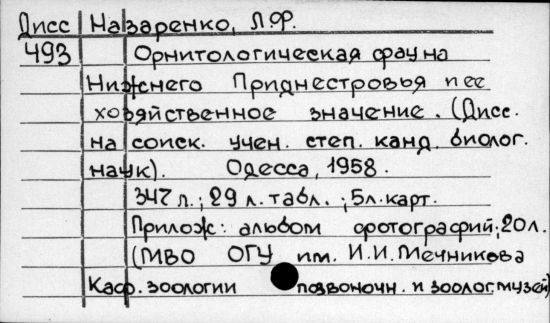 Дисс Назаренко, Л.Ф.
493 Орнитологическая фауна
Нижнего Приднестровья и ее
хозяйственное значение. (Дисс.
на соиск. учен. степ. канд. биолог.
наук). Одесса, 1958.
347 л.; 29 л. табл.; 5 л. карт.
Прилож: альбом фотографий; 20 л.
(МВО ОГУ им. И.И. Мечникова
Каф. зоологии позвоночн. и зоолог. музей)